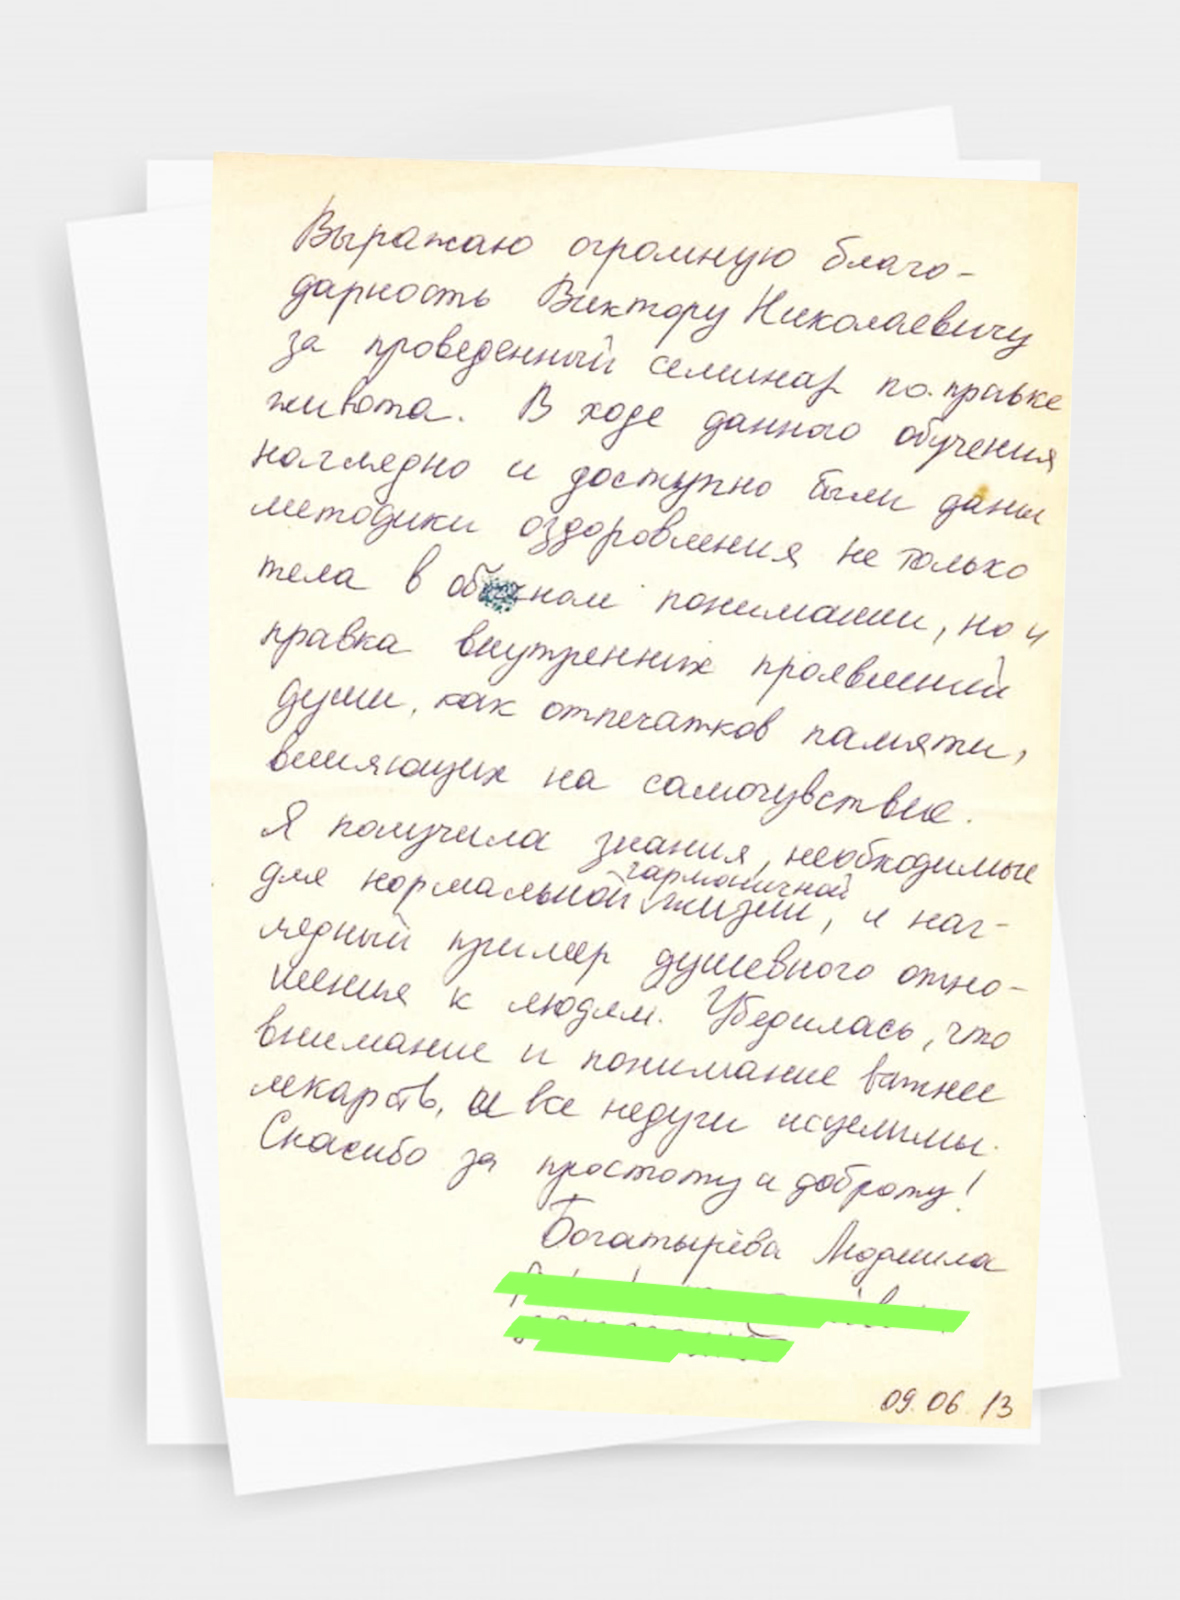 Выражаю огромную благо-
дарность Виктору Николаевичу
за проведенный семинар по правке
живота. В ходе данного обучения
наглядно и доступно были даны
методики оздоровления не только
тела в обычном понимании, но и
правка внутренних проявлений
души, как отпечатков памяти,
влияющих на самочувствие.
Я получила знания, необходимые
гармоничной
для нормальной жизни, и наг-
лядный пример душевного отно-
шения к людям. Убедилась, что
внимание и понимание важнее
лекарств, и все недуги исцелимы.
Спасибо за простоту и доброту!
Богатырёва Людмила
09.06.13